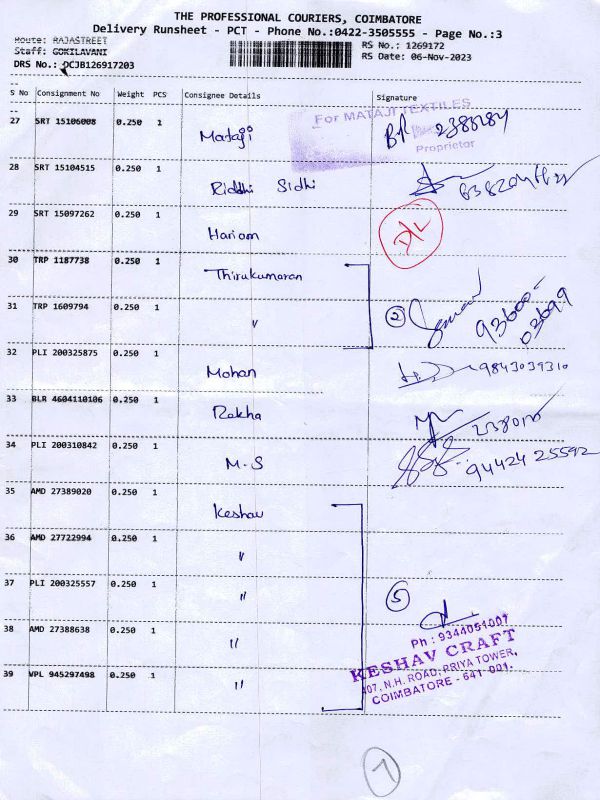 THE PROFESSIONAL COURIERS, COIMBATORE
Delivery Runsheet - PCT - Phone No.:0422-3505555 - Page No.:3
Route: RAJASTREET
Staff: GOKILAVANI
RS No.: 1269172
RS Date: 06-Nov-2023
DRS No.: DCJB126917203
S No Consignment No Weight PCS Consignee Details Signature
27 SRT 15106008 0.250 1 Mataji
For MATAJI TEXTILES
Proprietor
28 SRT 15104515 0.250 1 Riddhi Sidhi
29 SRT 15097262 0.250 1 Hariom
30 TRP 1187738 0.250 1 Thirukumaran
31 TRP 1609794 0.250 1 "
2
93600-
03699
32 PLI 200325875 0.250 1 Mohan 9843039310
33 BLR 4604110106 0.250 1 Rekha
34 PLI 200310842 0.250 1 M.S 94424 25592
35 AMD 27389020 0.250 1 Keshav
36 AMD 27722994 0.250 1 "
37 PLI 200325557 0.250 1 "
5
38 AMD 27388638 0.250 1 "
39 VPL 945297498 0.250 1 "
Ph : 9344051007
KESHAV CRAFT
107, N.H. ROAD, PRIYA TOWER,
COIMBATORE - 641 001.
7